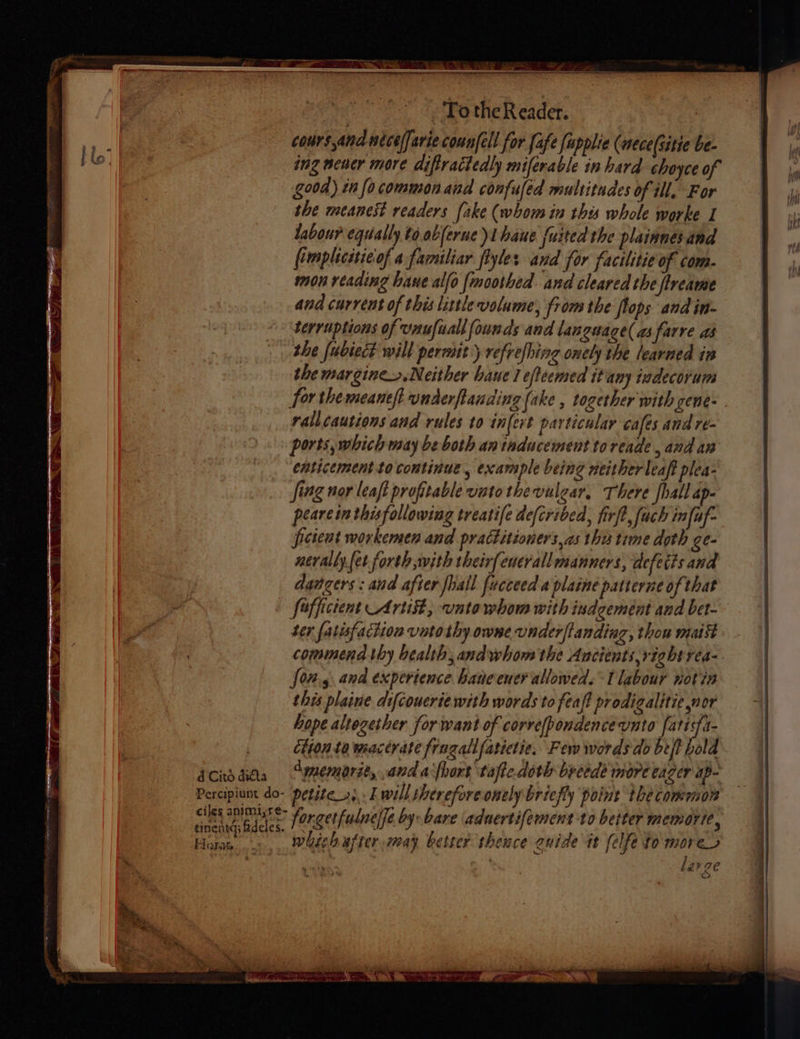 To the Reader.
cours, and necessarie counsell for safe supplie (necessitie be-
ing neuer more distractedly miserable in hard choyce of
good) in so common and confused multitudes of ill. For
the meanest readers sake (whom in this whole worke I
labour equally to obserue) I haue suited the plainnes and
simplicitie of a familiar styles and for facilitie of com-
mon reading haue also smoothed and cleared the streame
and current of this little volume, from the stops and in-
terruptions of vnusuall sounds and language (as farre as
the subiect will permit) refreshing onely the learned in
the margine. Neither haue I esteemed it any indecorum
for the meanest vnderstanding sake, together with gene-
rall cautions and rules to insert particular cases and re-
ports, which may be both an inducement to reade, and an
enticement to continue, example being neither least plea-
sing nor least profitable vnto the vulgar. There shall ap-
peare in this following treatise described, first, such insuf-
ficient workemen and practitioners, as this time doth ge-
nerally set forth, with their seuerall manners, defects and
dangers: and after shall succeed a plaine patterne of that
sufficient Artist, vnto whom with iudgement and bet-
ter satisfaction vnto thy owne vnderstanding, thou maist
commend thy health, and whom the Ancients, right rea-
son, and experience haue euer allowed. I labour not in
this plaine discouerie with words to feast prodigalitie, nor
hope altogether for want of correspondence vnto satisfa-
ction to macerate frugall satietie. Few words do best hold
d memorie, and a short taste doth breede more eager ap-
petite. I will therefore onely briefly point the common
forgetfulnesse by bare aduertisement to better memorie,
which after may better thence guide it selfe to more
large
d Citò dicta
Percipiunt do-
ciles animi, re-
tinentq; fideles.
Horat.